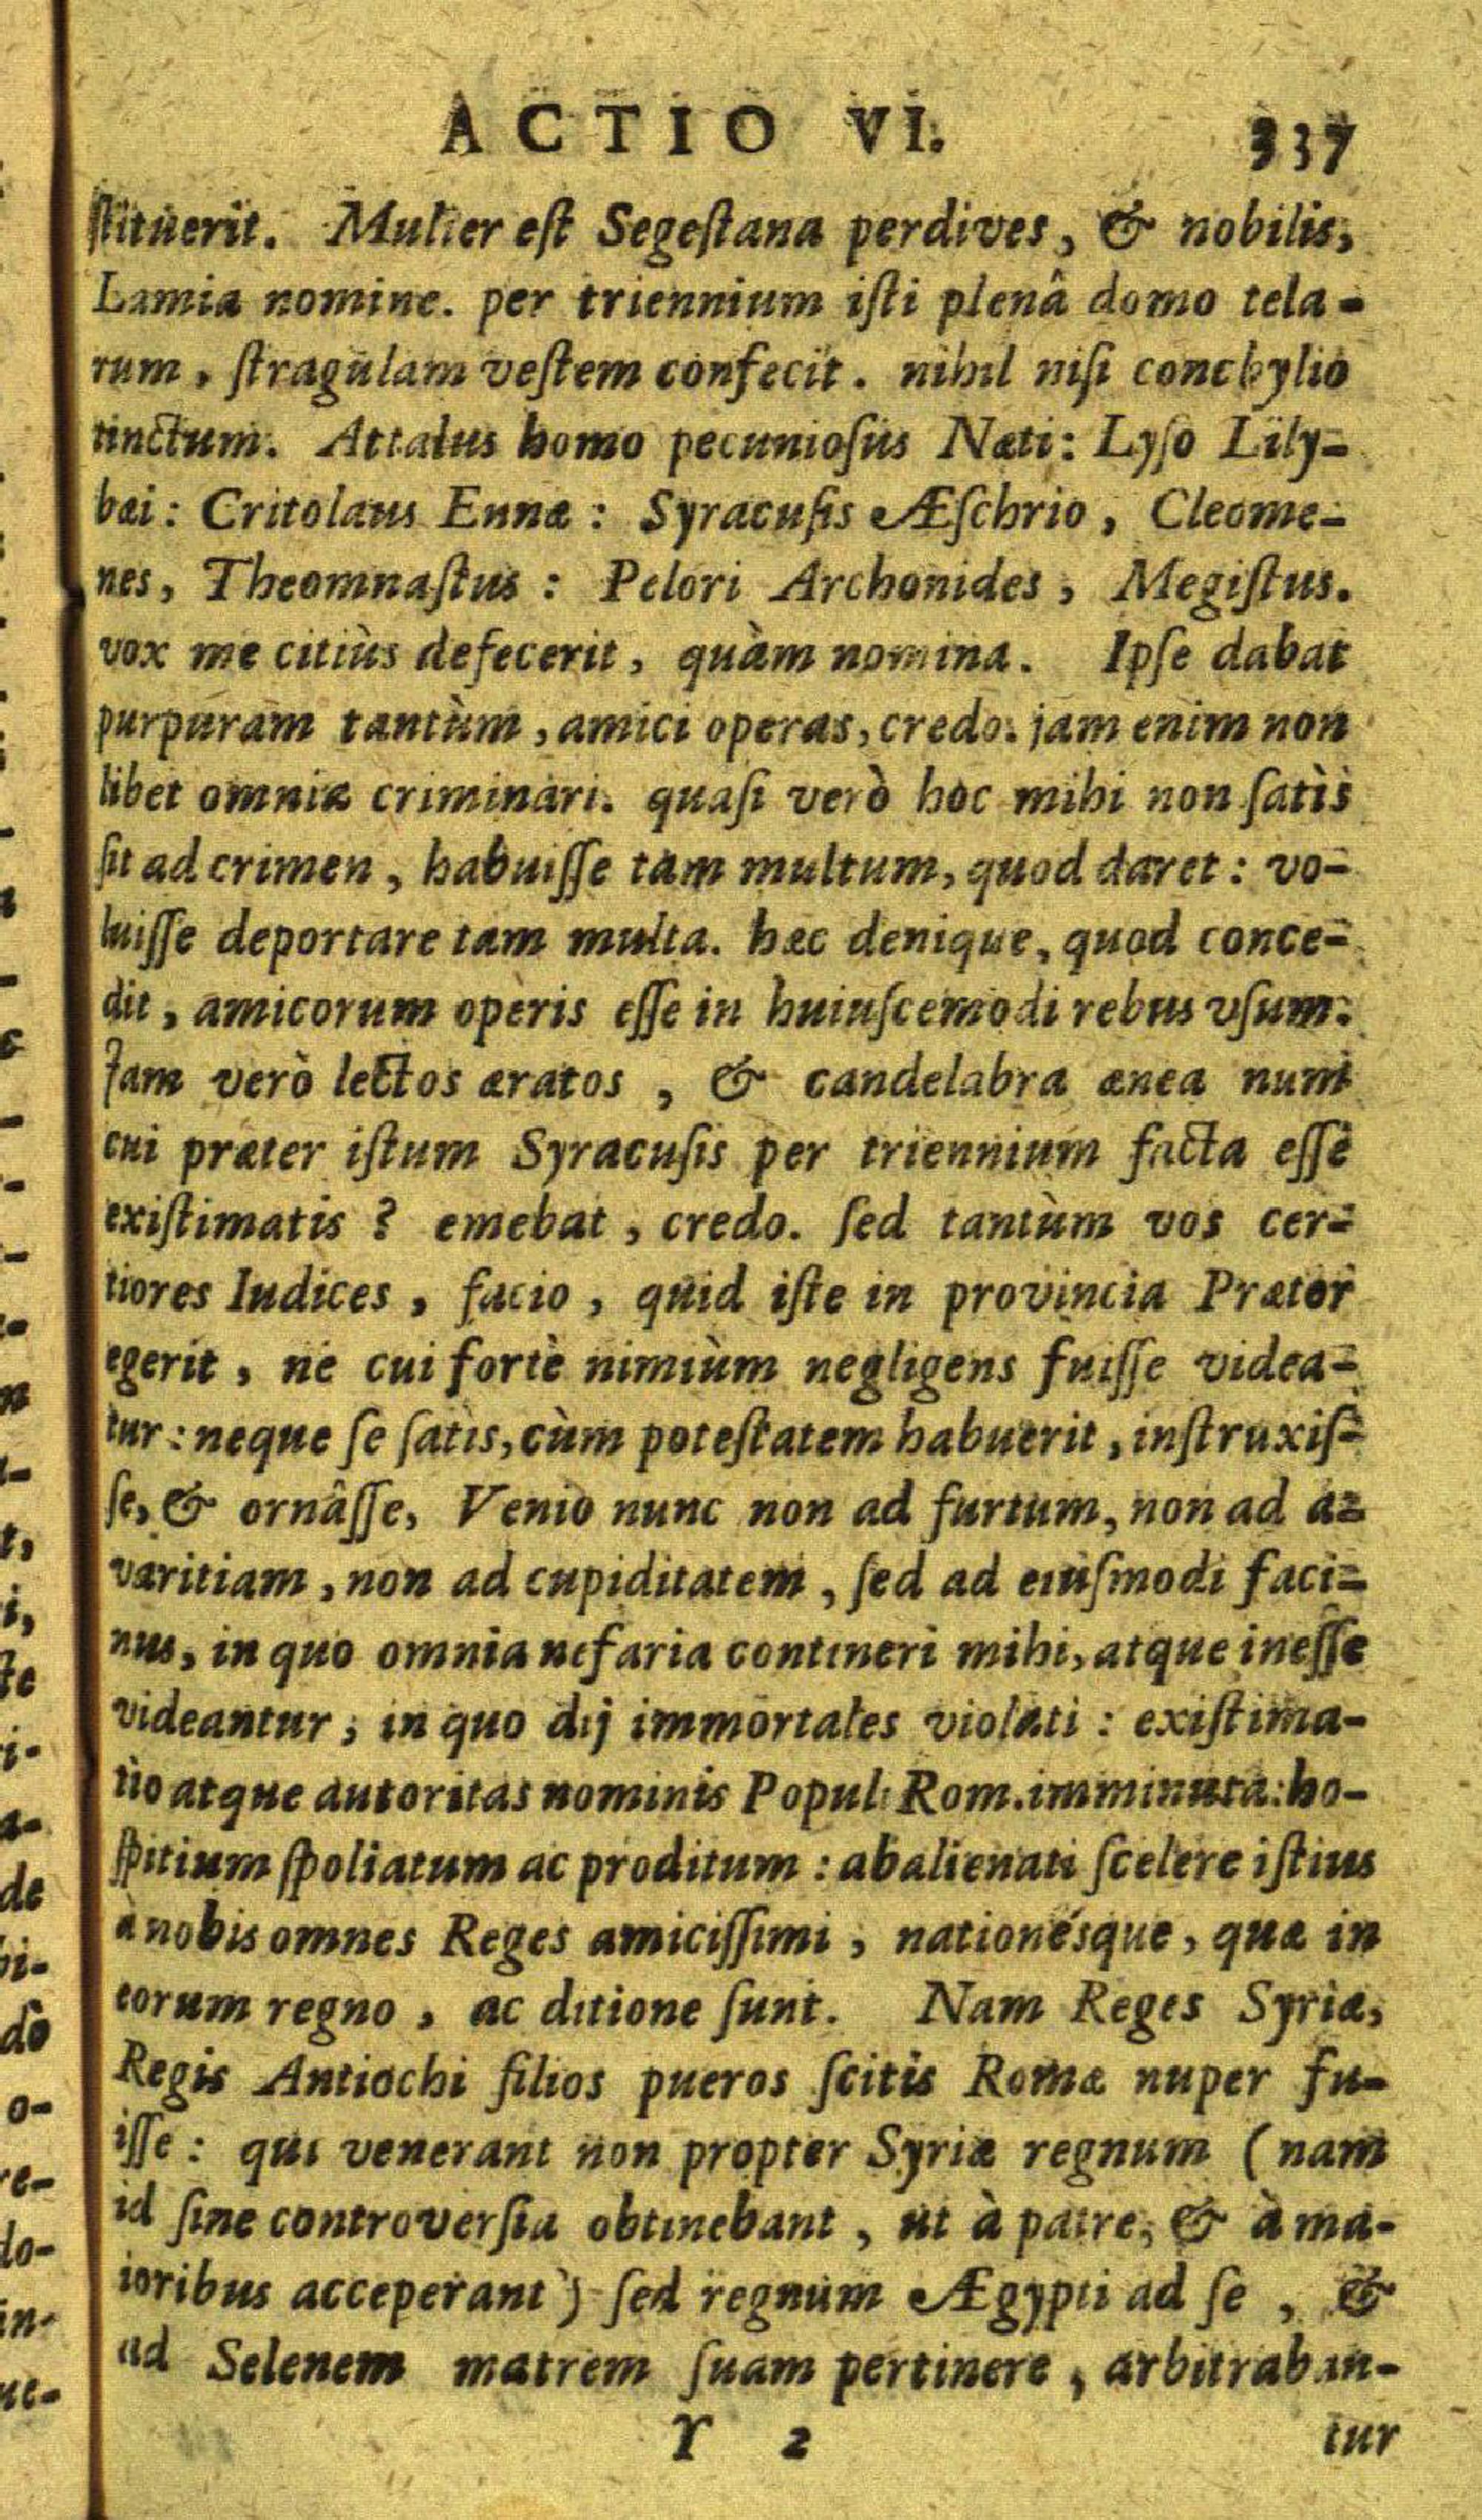 ACTIO VI. 337
ſtituerit. Mulier eſt Segeſtana perdives, & nobilis,
Lamia nomine. per triennium iſti plenâ domo tela-
rum, ſtragulam veſtem confecit. nihil niſi conchylio
tinctum. Attalus homo pecunioſus Næti: Lyſo Lily-
bæi: Critolaus Ennæ: Syracuſis Æſchrio, Cleome-
nes, Theomnaſtus: Pelori Archonides, Megiſtus.
vox me citiùs defecerit, quàm nomina. Ipſe dabat
purpuram tantùm, amici operas, credo. jam enim non
libet omnia criminari. quaſi verò hoc mihi non ſatìs
ſit ad crimen, habuiſſe tam multum, quod daret: vo-
luiſſe deportare tam multa. hæc denique, quod conce-
dit, amicorum operis eſſe in huiuſcemodi rebus vſum.
Jam verò lectos æratos, & candelabra ænea num
cui præter iſtum Syracuſis per triennium facta eſſe
exiſtimatis? emebat, credo. ſed tantùm vos cer-
tiores Iudices, facio, quid iſte in provincia Prætor
egerit, ne cui fortè nimiùm negligens fuiſſe videa-
tur: neque ſe ſatis, cùm poteſtatem habuerit, inſtruxiſ-
ſe, & ornâſſe, Venio nunc non ad furtum, non ad a-
varitiam, non ad cupiditatem, ſed ad eiuſmodi faci-
nus, in quo omnia nefaria contineri mihi, atque ineſſe
videantur; in quo dij immortales violati: exiſtima-
tio atque autoritas nominis Populi Rom. imminuta: ho-
ſpitium ſpoliatum ac proditum: abalienati ſcelere iſtius
à nobis omnes Reges amiciſſimi, nationésque, quæ in
eorum regno, ac ditione ſunt. Nam Reges Syriæ,
Regis Antiochi filios pueros ſcitis Romæ nuper fu-
iſſe: qui venerant non propter Syriæ regnum (nam
id ſine controverſia obtinebant, ut à patre, & à ma-
ioribus acceperant) ſed regnum Ægypti ad ſe, &
ad Selenem matrem ſuam pertinere, arbitraban-
Y 2 tur